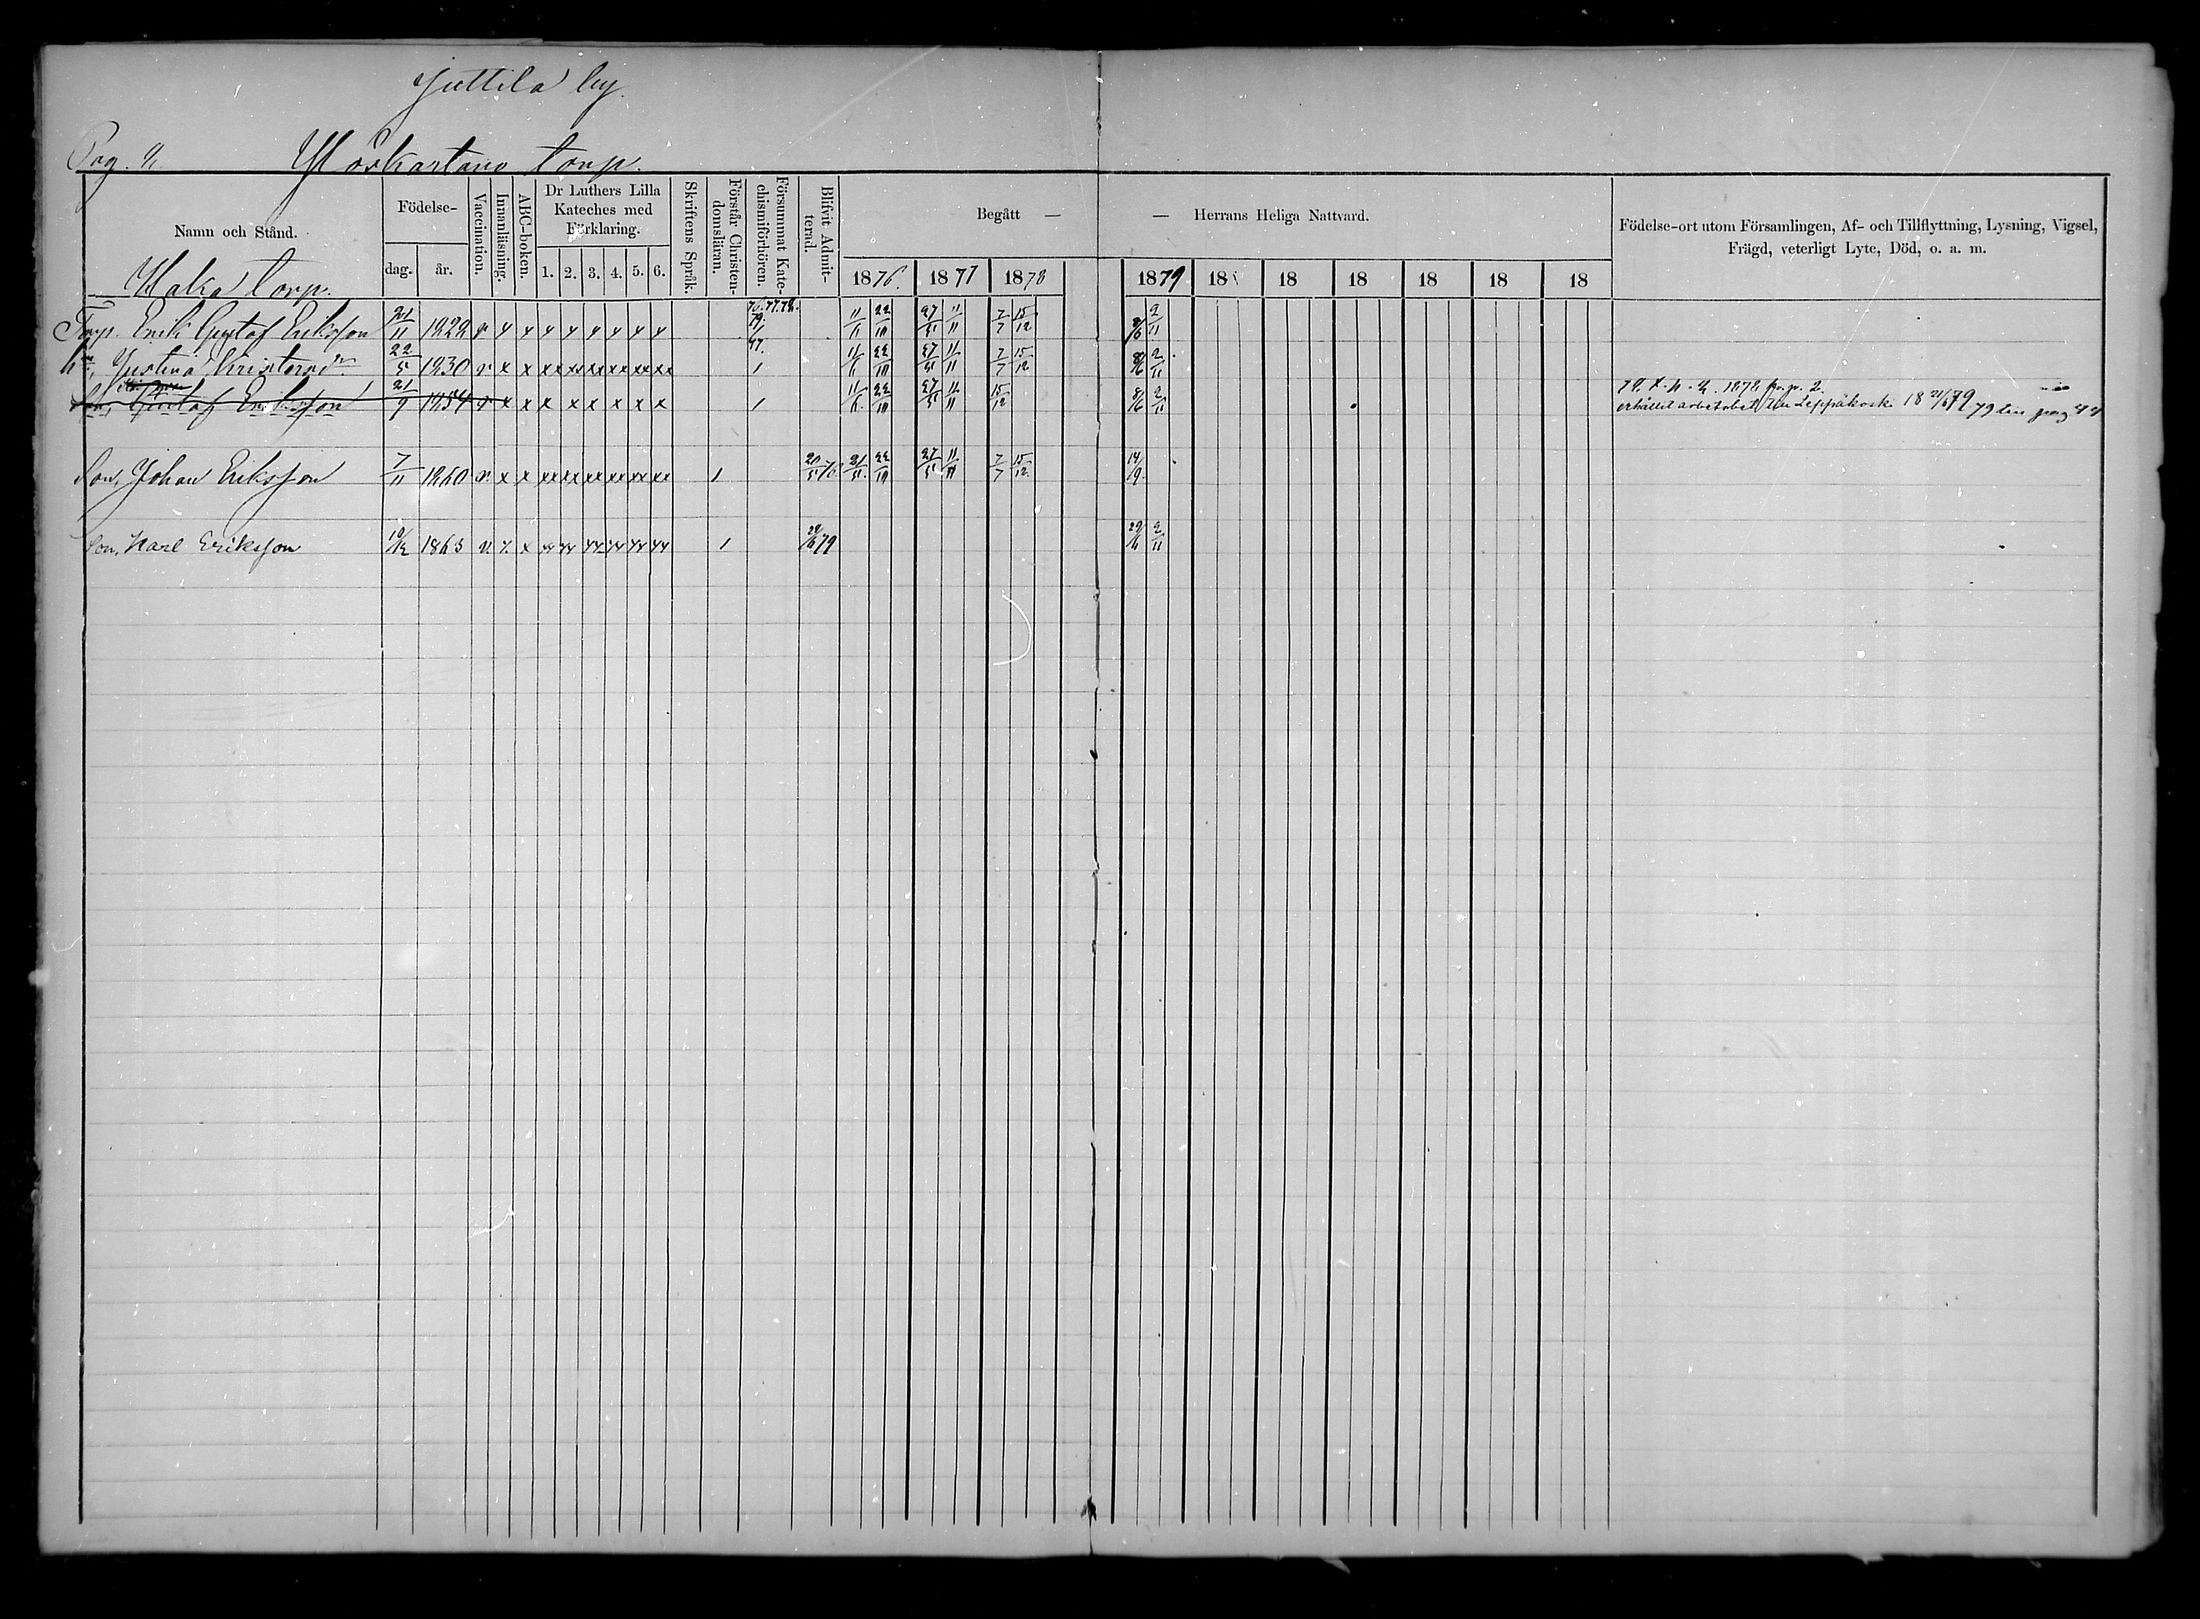 Juttila by
Pag.
torp.
Namn och Stånd.
Födelse-
dag. år.
Vaccination.
Innanläsning.
ABC-boken.
Dr Luthers Lilla
Kateches med
Förklaring.
1. 2. 3. 4. 5. 6.
Skriftens Språk.
Förstår Christen-
domsläran.
Försummat Kate-
chismiförhören.
Blifvit Admit-
terad.
Begått —
— Herrans Heliga Nattvard.
1876. 1877 1878 1879 18 18 18 18 18 18
Födelse-ort utom Församlingen, Af- och Tillflyttning, Lysning, Vigsel,
Frägd, veterligt Lyte, Död, o. a. m.
Haka torp.
Torp. Erik Gustaf Eriksson 21/11 1829 v x x x x x x x x 76.77.78. 79. 11/6 22/10 27/5 11/11 7/7 15/12 8/6 2/11
Justina 22/5 1830 v x x xx xx xx xx xx xx 77. 11/6 22/10 27/5 11/11 7/7 15/12 8/6 2/11
Son, Gustaf Eriksson 21/9 1854 v x x x x x x x x 11/6 22/10 27/5 11/11 15/12 8/6 2/11
erhållit Leppäkoski 18 79
Son, Johan Eriksson 7/11 1860 v x x xx xx xx xx xx xx 1 21/5 22/10 27/5 11/11 7/7 15/12 14/9
Son, Karl Eriksson 1863 v x x xx xx xx xx xx xx 1 29/6 79 29/6 2/11